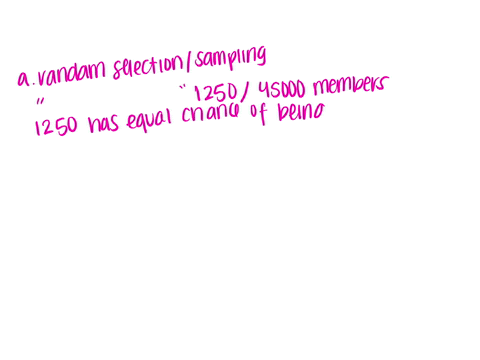 a. randam selection/sampling
" " 1250 / 45000 members
1250 has equal chance of being